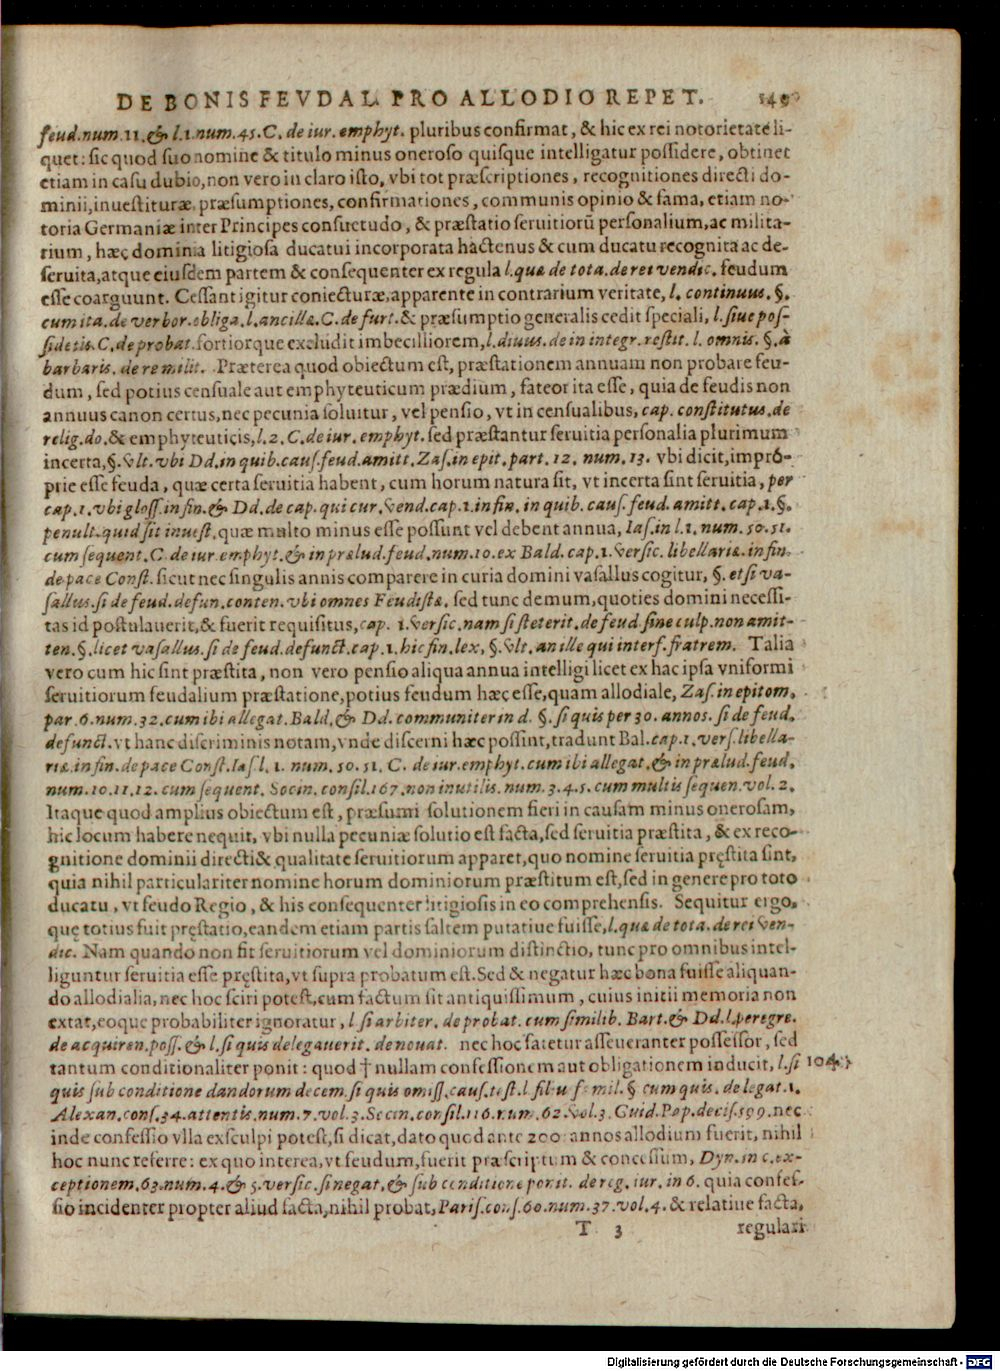 DE BONIS FEVDAL. PRO ALLODIO REPET. 149
feud.num.11.& l.1.num.45.C. de iur. emphyt. pluribus confirmat, & hic ex rei notorietate li-
quet: sic quod suo nomine & titulo minus oneroso quisque intelligatur possidere, obtinet
etiam in casu dubio, non vero in claro isto, vbi tot præscriptiones, recognitiones directi do-
minii, inuestituræ, præsumptiones, confirmationes, communis opinio & fama, etiam no-
toria Germaniæ inter Principes consuetudo, & præstatio seruitiorũ personalium, ac milita-
rium, hæc dominia litigiosa ducatui incorporata hactenus & cum ducatu recognita ac de-
seruita, atque eiusdem partem & consequenter ex regula l.quæ de tota. de rei vendic. feudum
esse coarguunt. Cessant igitur coniecturæ, apparente in contrarium veritate, l. continuus. §.
cum ita. de verbor. obliga. l. ancillæ. C. de furt. & præsumptio generalis cedit speciali, l. siue pos-
sidetis. C. de probat. fortiorque excludit imbecilliorem, l. diuus. de in integr. restit. l. omnis. §. à
barbaris. de re milit. Præterea quod obiectum est, præstationem annuam non probare feu-
dum, sed potius censuale aut emphyteuticum prædium, fateor ita esse, quia de feudis non
annuus canon certus, nec pecunia soluitur, vel pensio, vt in censualibus, cap. constitutus. de
relig. do. & emphyteuticis, l. 2. C. de iur. emphyt. sed præstantur seruitia personalia plurimum
incerta, §. vlt. vbi Dd. in quib. caus. feud. amitt. Zas. in epit. part. 12. num. 13. vbi dicit, impró-
prie esse feuda, quæ certa seruitia habent, cum horum natura sit, vt incerta sint seruitia, per
cap. 1. vbi gloss. in fin. & Dd. de cap. qui cur. vend. cap. 1. in fin. in quib. caus. feud. amitt. cap. 1. §.
penult. quid sit inuest. quæ multo minus esse possunt vel debent annua, Ias. in l. 1. num. 50. 51.
cum sequent. C. de iur. emphyt. & in prælud. feud. num. 10. ex Bald. cap. 1. versic. libellaria. in fin.
de pace Const. sicut nec singulis annis comparere in curia domini vasallus cogitur, §. et si va-
sallus. si de feud. defun. conten. vbi omnes Feudistæ, sed tunc demum, quoties domini necessi-
tas id postulauerit, & fuerit requisitus, cap. 1. versic. nam si steterit. de feud. sine culp. non amit-
ten. §. licet vasallus. si de feud. defunct. cap. 1. hic fin. lex, §. vlt. an ille qui interf. fratrem. Talia
vero cum hic sint præstita, non vero pensio aliqua annua intelligi licet ex hac ipsa vniformi
seruitiorum feudalium præstatione, potius feudum hæc esse, quam allodiale, Zas. in epitom.
par. 6. num. 32. cum ibi allegat. Bald. & Dd. communiter in d. §. si quis per 30. annos. si de feud.
defunct. vt hanc discriminis notam, vnde discerni hæc possint, tradunt Bal. cap. 1. vers. libella-
riæ. in fin. de pace Const. Ias. l. 1. num. 50. 51. C. de iur. emphyt. cum ibi allegat. & in prælud. feud.
num. 10. 11. 12. cum sequent. Socin. consil. 167. non inutilis. num. 3. 4. 5. cum multis sequen. vol. 2.
Itaque quod amplius obiectum est, præsumi solutionem fieri in causam minus onerosam,
hic locum habere nequit, vbi nulla pecuniæ solutio est facta, sed seruitia præstita, & ex reco-
gnitione dominii directi & qualitate seruitiorum apparet, quo nomine seruitia pręstita sint,
quia nihil particulariter nomine horum dominiorum præstitum est, sed in genere pro toto
ducatu, vt feudo Regio, & his consequenter litigiosis in eo comprehensis. Sequitur ergo,
quę totius fuit pręstatio, eandem etiam partis saltem putatiue fuisse, l. quæ de tota. de rei ven-
dic. Nam quando non fit seruitiorum vel dominiorum distinctio, tunc pro omnibus intel-
liguntur seruitia esse pręstita, vt supra probatum est. Sed & negatur hæc bona fuisse aliquan-
do allodialia, nec hoc sciri potest, cum factum sit antiquissimum, cuius initii memoria non
extat, eoque probabiliter ignoratur, l si arbiter. de probat. cum similib. Bart. & Dd. l. peregre.
de acquiren. poss. & l. si quis delegauerit. de nouat. nec hoc fatetur asseueranter possessor, sed
tantum conditionaliter ponit: quod † nullam confessionem aut obligationem inducit, l. si 104
quis sub conditione dandorum decem. si quis omiss. caus. test. l. filiusfamil. § cum quis. de legat. 1.
Alexan. cons. 34. attentis. num. 7. vol. 3. Socin. consil. 116. num. 62. vol. 3. Guid. Pap. decis. 599. nec
inde confessio vlla exsculpi potest, si dicat, dato quod ante 200. annos allodium fuerit, nihil
hoc nunc referre: ex quo interea, vt feudum, fuerit præscriptum & concessum, Dyn. in c. ex-
ceptionem. 63. num. 4. & 5. versic. si negat, & sub conditione ponit. de reg. iur. in 6. quia confes-
sio incidenter propter aliud facta, nihil probat, Paris. cons. 60. num. 37. vol. 4. & relatiue facta,
T 3 regulari
Digitalisierung gefördert durch die Deutsche Forschungsgemeinschaft - DFG